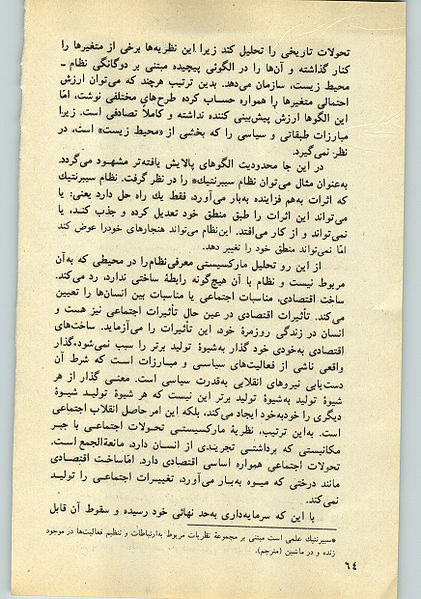 تحولات تاریخی را تحلیل کند زیرا این نظریه‌ها برخی از متغیرها را
کنار گذاشته و آن‌ها را در الگوئی پیچیده مبتنی بر دوگانگی نظام ـ
محیط زیست، سازمان می‌دهد. بدین ترتیب هرچند که می‌توان ارزش
احتمالی متغیرها را همواره حساب کرده طرح‌های مختلفی نوشت، امّا
این الگوها ارزش پیش‌بینی کننده نداشته و کاملاً تصادفی است. زیرا
مبارزات طبقاتی و سیاسی را که بخشی از «محیط زیست» است، در
نظر نمی‌گیرد.
در این جا محدودیت الگوهای پالایش یافته‌تر مشهود می‌گردد.
به‌عنوان مثال می‌توان نظام سیبرنتیك* را در نظر گرفت. نظام سیبرنتیك
که اثرات به‌هم فزاینده به‌بار می‌آورد، فقط یك راه حل دارد یعنی: یا
می‌تواند این اثرات را طبق منطق خود تعدیل کرده و جذب کند، یا
نمی‌تواند و از کار می‌افتد. این‌نظام می‌تواند هنجارهای خودرا عوض کند
امّا نمی‌تواند منطق خود را تغییر دهد.
از این رو تحلیل مارکسیستی معرفی‌نظام‌را در محیطی که به‌آن
مربوط نیست و نظام با آن هیچ‌گونه رابطهٔ ساختی ندارد، رد می‌کند.
ساخت اقتصادی، مناسبات اجتماعی یا مناسبات بین انسان‌ها را تعیین
می‌کند. تأثیرات اقتصادی در عین حال تأثیرات اجتماعی نیز هست و
انسان در زندگی روزمرهٔ خود، این تأثیرات را می‌آزماید. ساخت‌های
اقتصادی به‌خودی خود گذار به‌شیوهٔ تولید برتر را سبب نمی‌شود.گذار
واقعی ناشی از فعالیت‌های سیاسی و مبارزات است که شرط آن
دست‌یابی نیروهای انقلابی به‌قدرت سیاسی است. معنی گذار از هر
شیوهٔ تولید به‌شیوهٔ تولید برتر این نیست که هر شیوهٔ تولید شیوهٔ
دیگری را خودبه‌خود ایجاد می‌کند، بلکه این امر حاصل انقلاب اجتماعی
است. به‌این ترتیب، نظریهٔ مارکسیستی تحولات اجتماعی با جبر
مکانیستی که برداشتی تجریدی از انسان دارد، مانعةالجمع است.
تحولات اجتماعی همواره اساسی اقتصادی دارد. امّاساخت اقتصادی
مانند درختی که میوه به‌بار می‌آورد، تغییرات اجتماعی را تولید
نمی‌کند.
با این که سرمایه‌داری به‌حد نهائی خود رسیده و سقوط آن قابل
*سیبرنتیك علمی است مبتنی بر مجموعهٔ نظریات مربوط به‌ارتباطات و تنظیم فعالیت‌ها در موجود
زنده و در ماشین (مترجم).
٦٤